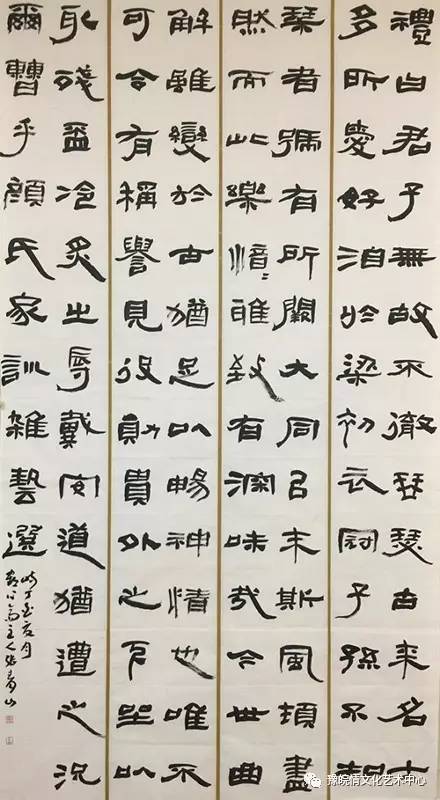 禮曰君子無故不徹琴瑟古來名士
多所愛好洎於梁初衣冠子孫不知
琴者號有所闕大同以末斯風頓盡
然而此樂愔愔雅致有深味哉今世曲
解雖變於古猶足以暢神情也唯不
可令有稱譽見役勛貴處之下坐以
取殘盃冷炙之辱戴安道猶遭之況
爾曹乎顏氏家訓雜藝選
時丁酉
主人張青山
豫皖情文化艺术中心